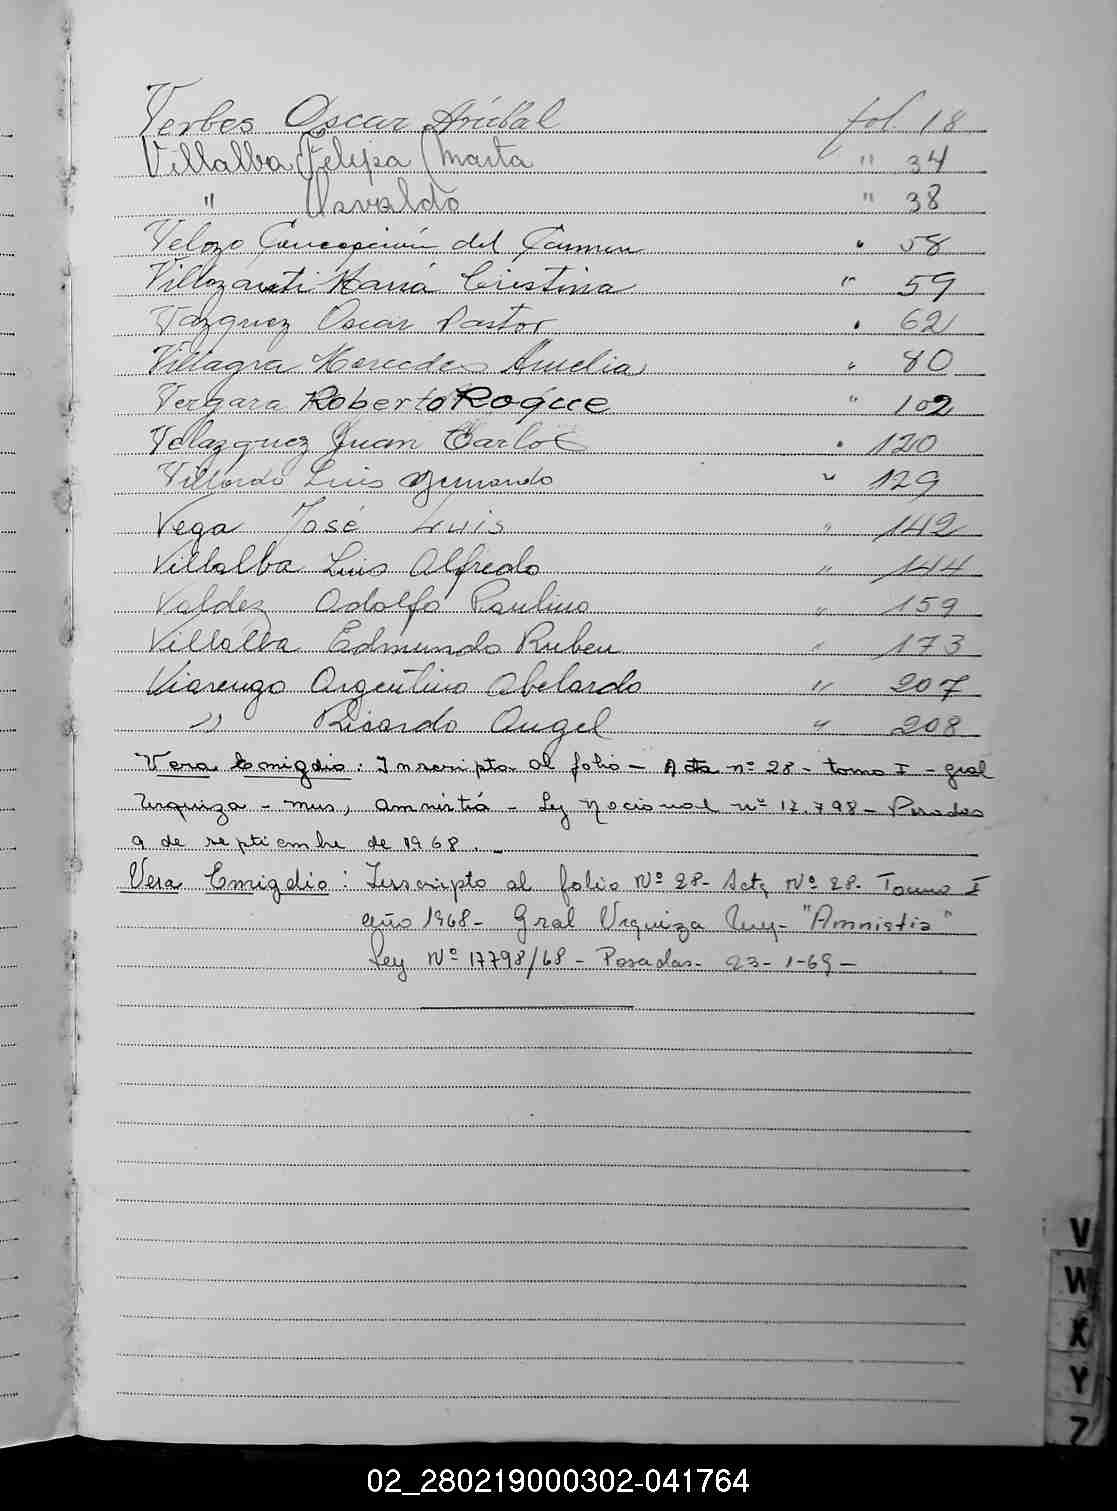 Verbes Oscar Aníbal fol. 18
Villalba Felipa Marta " 34
" Osvaldo " 38
Velozo Concepción del Carmen " 58
Villazanti María Cristina " 59
Vazquez Oscar Pastor " 62
Villagra Mercedes Amelia " 80
Vergara Roberto Roque " 102
Velazquez Juan Carlos " 120
Villordo Luis Fernando " 129
Vega José Luis " 142
Villalba Luis Alfredo " 144
Valdez Adolfo Paulino " 159
Villalba Edmundo Ruben " 173
Viarengo Argentino Abelardo " 207
" Ricardo Angel " 208
Vera Emigdio: Inscripto al folio - Acta nº 28 - tomo I - gral
Urquiza - mns, amnistía - Ley Nacional nº 17.798 - Posadas
9 de septiembre de 1968. -
Vera Emigdio: Inscripto al folio Nº 28- Acta Nº 28- Tomo I
año 1968- Gral Urquiza "Amnistia"
Ley Nº 17798/68 - Posadas- 23-1-69 -
V
W
X
Y
Z
02_280219000302-041764